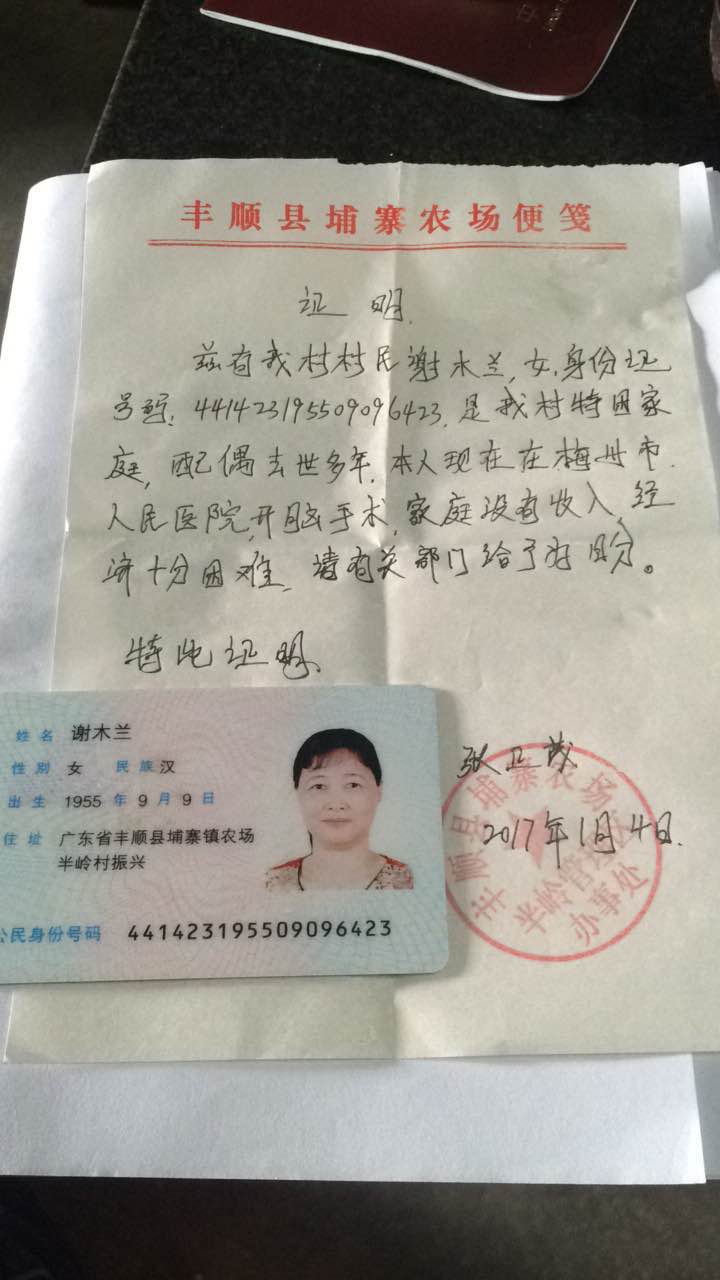 丰顺县埔寨农场便笺
证 明.
兹有我村村民谢木兰,女,身份证
号码:441423195509096423,是我村特困家
庭,配偶去世多年,本人现在在梅州市
人民医院,开脑手术,家庭没有收入,经
济十分困难,请有关部门给予为盼。
特此证明.
姓名 谢木兰
性别 女 民族 汉
出生 1955 年 9 月 9 日
住址 广东省丰顺县埔寨镇农场
半岭村振兴
公民身份号码 441423195509096423
张卫茂
2017年1月4日.
丰顺县埔寨农场
半岭管
办事处